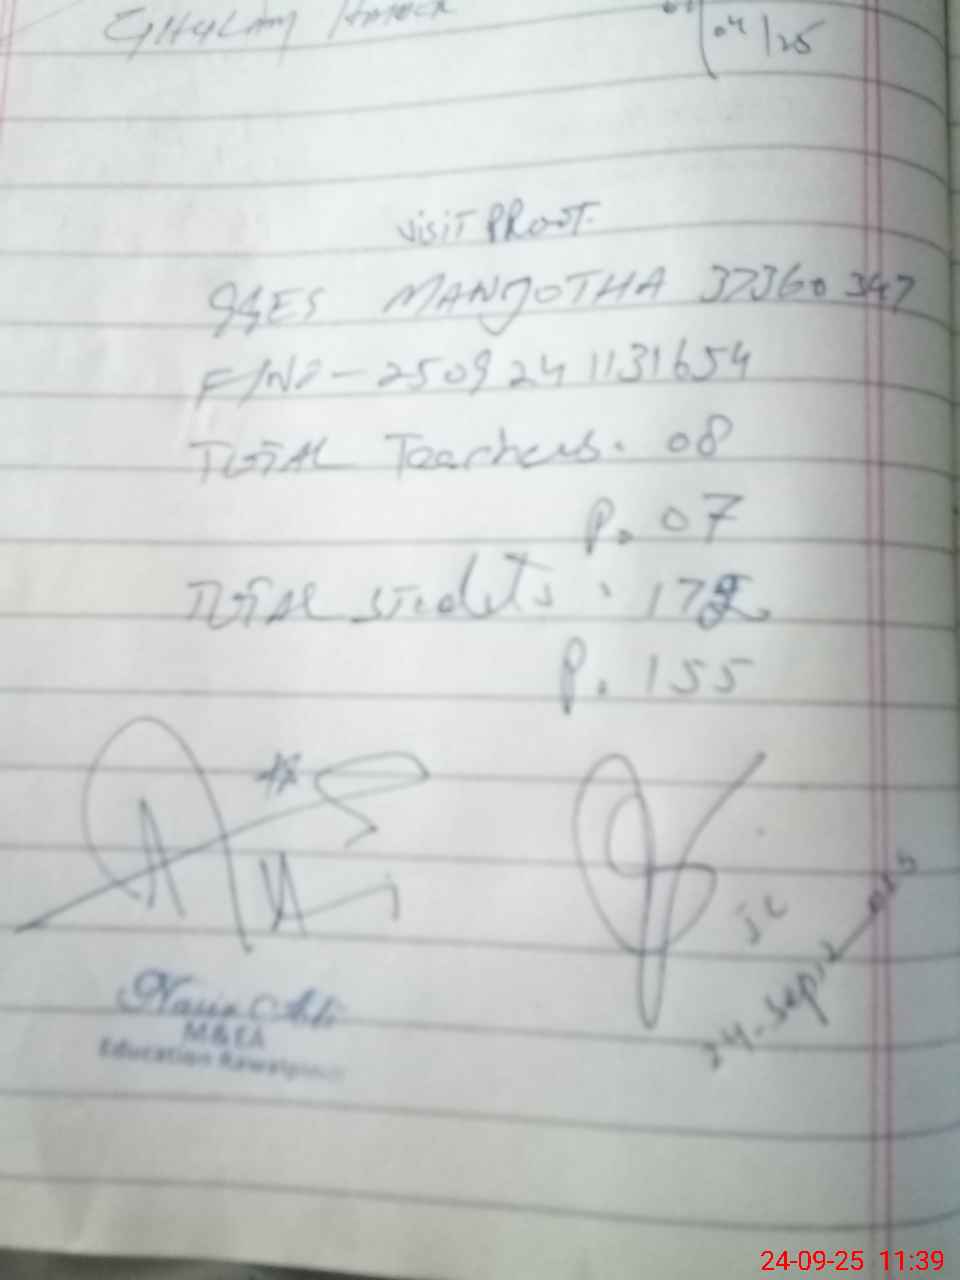 GHULAM
04/25
Visit PRooT.
GGES MANJOTHA 37360347
F/No - 250924 1131654
TOTAL Teachers. 08
P. 07
TOTAL students. 172
P. 155
24-Sep-2025
M&EA
Education Rawalpindi
24-09-25 11:39